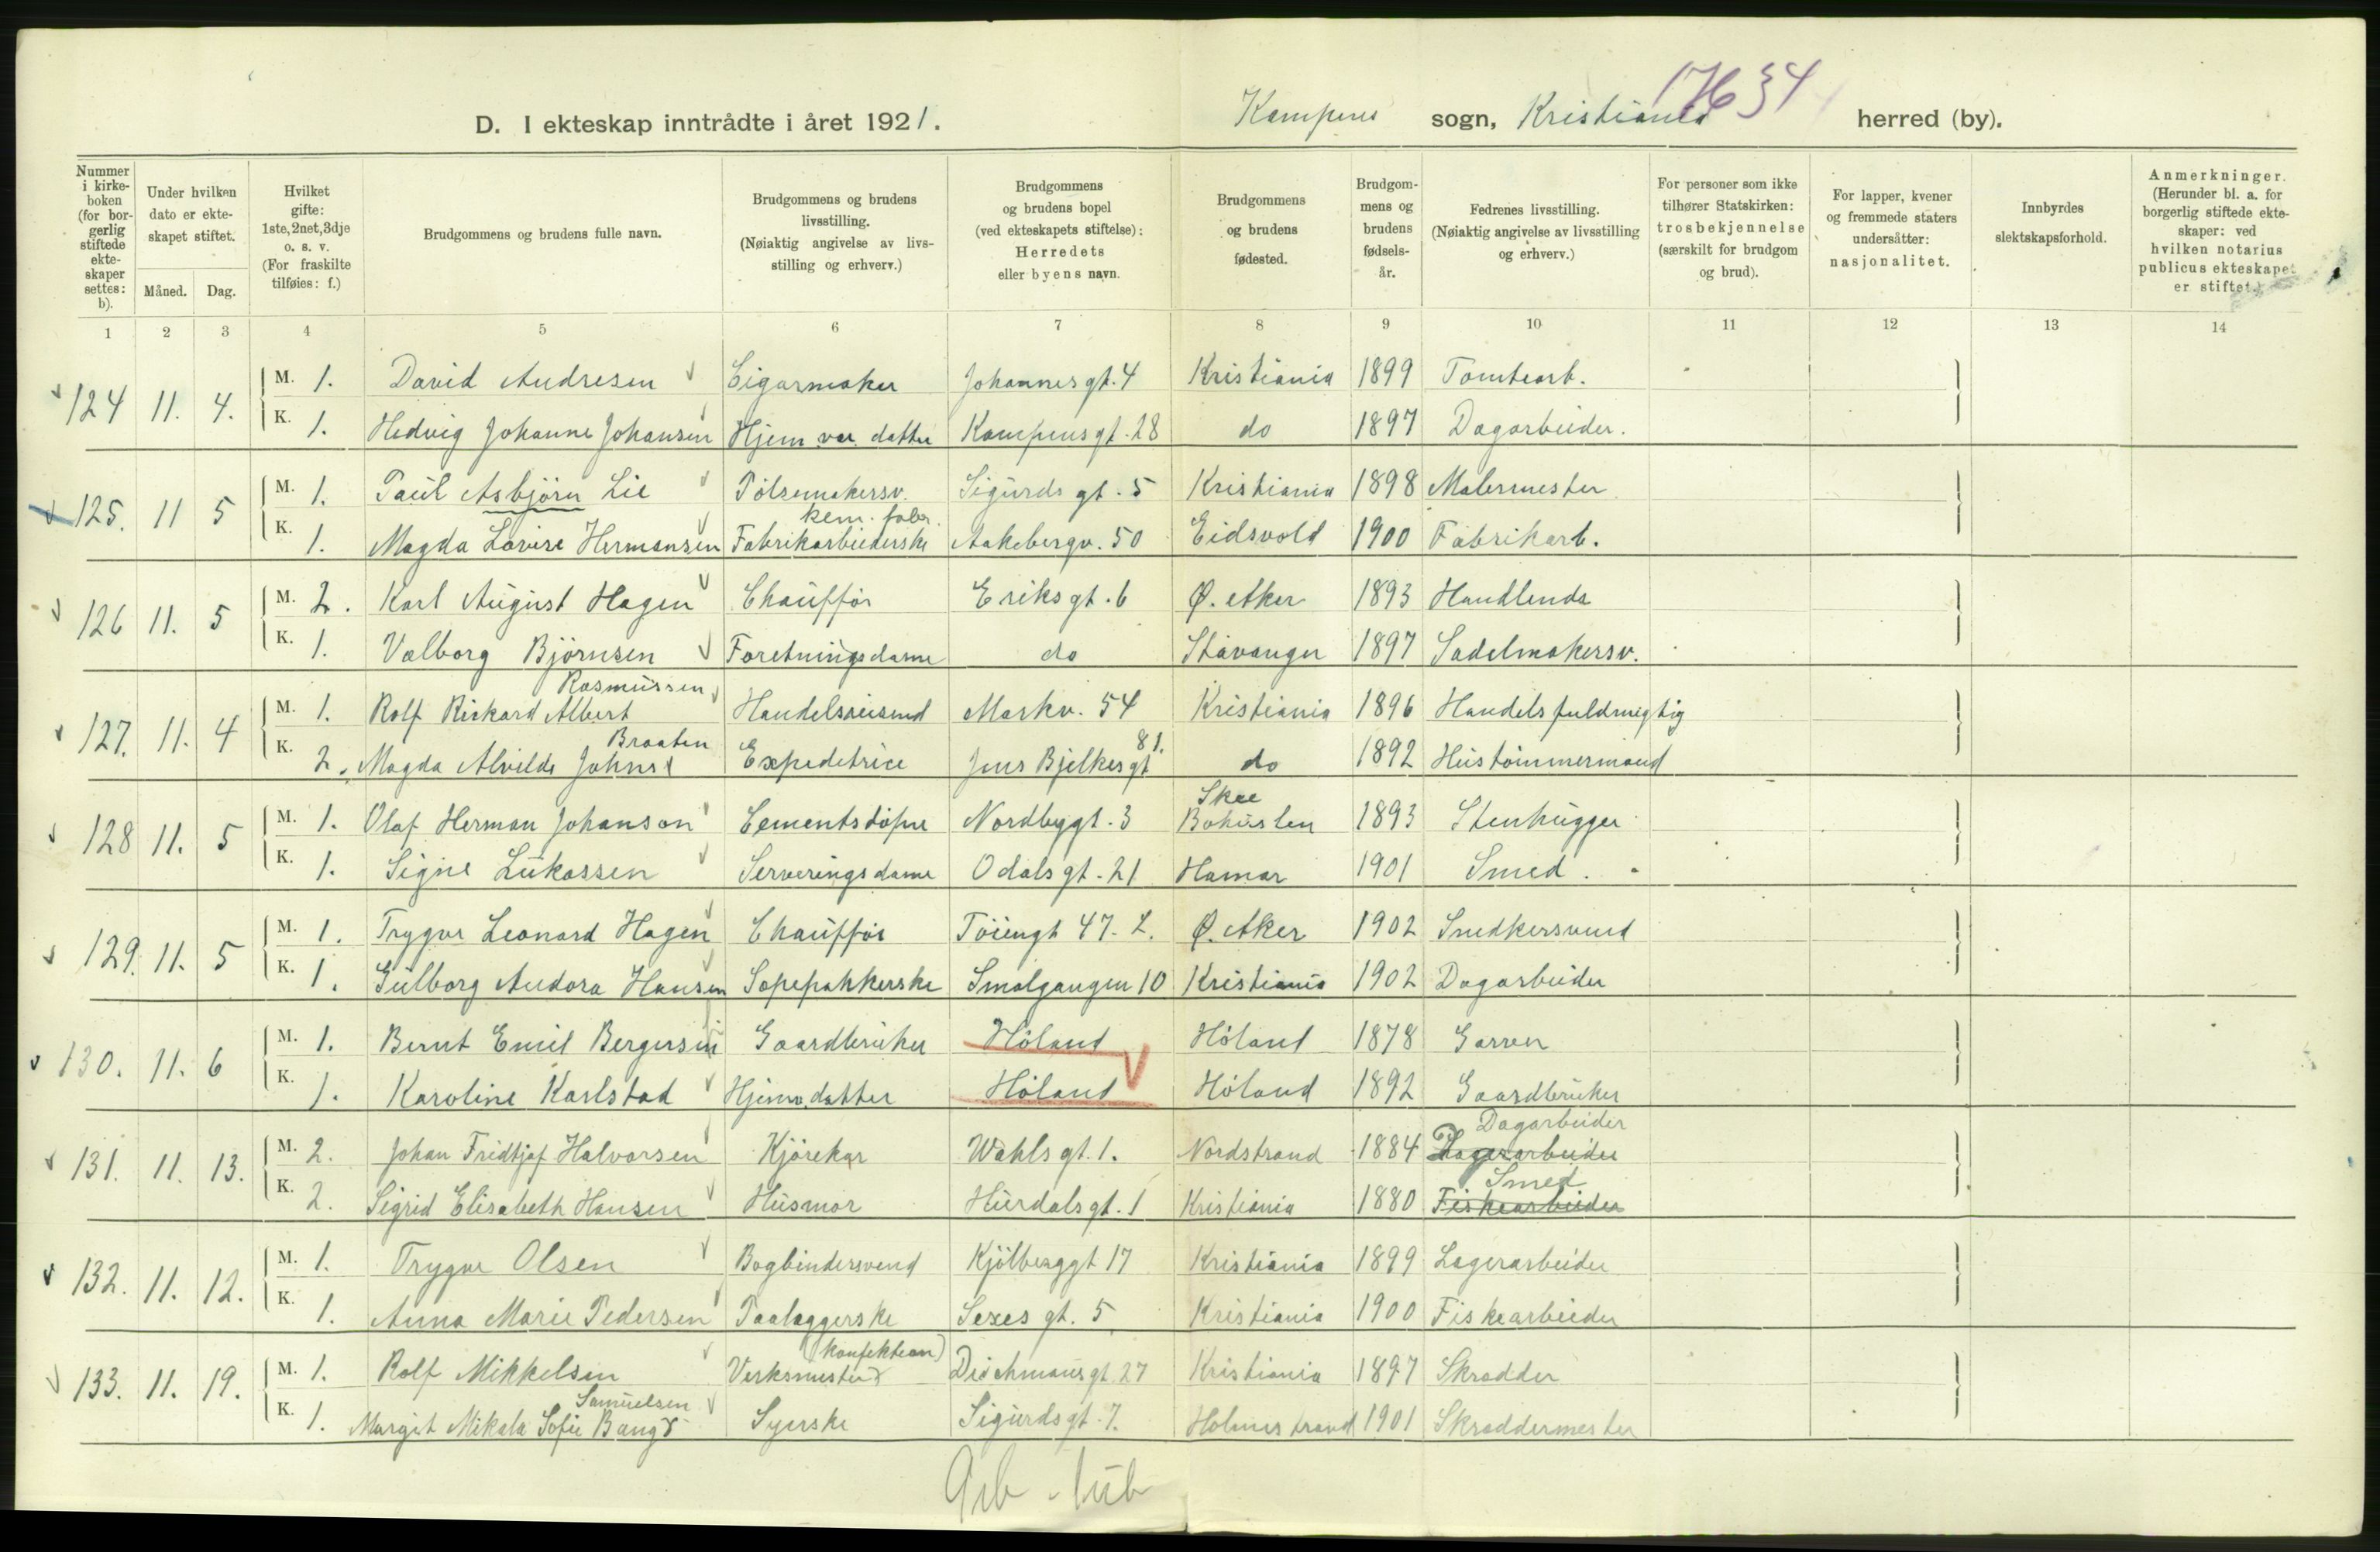 17634
D. I ekteskap inntrådte i året 1921. Kampens sogn, Kristiania herred (by).
Nummer i kirke-boken (for bor-gerlig stiftede ekte-skaper settes: b).
Under hvilken dato er ekte-skapet stiftet.
Måned. Dag.
Hvilket gifte: 1ste, 2net, 3dje o. s. v. (For fraskilte tilføies: f.)
Brudgommens og brudens fulle navn.
Brudgommens og brudens livsstilling. (Nøiaktig angivelse av livs-stilling og erhverv.)
Brudgommens og brudens bopel (ved ekteskapets stiftelse): Herredets eller byens navn.
Brudgommens og brudens fødested.
Brudgom-mens og brudens fødsels-år.
Fedrenes livsstilling. (Nøiaktig angivelse av livsstilling og erhverv.)
For personer som ikke tilhører Statskirken: trosbekjennelse (særskilt for brudgom og brud).
For lapper, kvener og fremmede staters undersåtter: nasjonalitet.
Innbyrdes slektskapsforhold.
Anmerkninger. (Herunder bl. a. for borgerlig stiftede ekte-skaper: ved hvilken notarius publicus ekteskapet er stiftet.)
1 2 3 4 5 6 7 8 9 10 11 12 13 14
124 11. 4. M. 1. David Andresen Cigarmaker Johannesgt. 4 Kristiania 1899 Tomtearb.
K. 1. Hedvig Johanne Johansen Hjem vær. datter Kampensgt. 28 do 1897 Dagarbeider.
125. 11 5 M. 1. Paul Asbjörn Lie Pölsemakersv. Sigurds gt. 5 Kristiania 1898 Malermester
kem. fabr.
K. 1. Magda Lovise Hermansen Fabrikarbeiderske Aakebergv. 50 Eidsvold 1900 Fabrikarb.
126 11. 5 M. 2. Karl August Hagen Chauffør Eriksgt. 6 Ø. Aker 1893 Handlende
K. 1. Valborg Björnsen Foretningsdame do Stavanger 1897 Sadelmakersv.
Rasmussen
127. 11. 4 M. 1. Rolf Rikard Albert Handelsreisend Markv. 54 Kristiania 1896 Handelsfuldmegtig
Braaten 81.
K. 2. Magda Alvilde Johns Expeditrice Jens Bjelkesgt do 1892 Hustömmermand
Skee
128 11. 5 M. 1. Olaf Herman Johanson Cementstöper Nordbygt. 3 Bohuslen 1893 Stenhugger
K. 1. Signe Lukassen Serveringsdame Odalsgt. 21 Hamar 1901 Smed.
129. 11. 5 M. 1. Trygve Leonard Hagen Chauffør Töiengt 47. L. Ø. Aker 1902 Snedkersvend
K. 1. Gulborg Andora Hansen Sæpepakkerske Smalgangen 10 Kristiania 1902 Dagarbeider
130. 11. 6 M. 1. Bernt Emil Bergersen Gaardbruker Höland Höland 1878 Garver
K. 1. Karoline Karlstad Hjemv. datter Höland Höland 1892 Gaardbruker
Dagarbeider
131. 11. 13. M. 2. Johan Fridtjof Halvorsen Kjörekar Wahls gt. 1. Nordstrand 1884 Lagerarbeider
Smed
K. 2. Sigrid Elisabeth Hansen Husmor Hurdalsgt. 1 Kristiania 1880 Fiskearbeider
132. 11. 12. M. 1. Trygve Olsen Bogbindersvend Kjölberggt 17 Kristiania 1899 Lagerarbeider
K. 1. Anna Marie Pedersen Paalæggerske Sexes gt. 5 Kristiania 1900 Fiskearbeider
(konfektion)
133. 11. 19. M. 1. Rolf Mikkelsen Verksmester Deichmansgt. 27 Kristiania 1897 Skrædder
Samuelsen
K. 1. Margit Mikala Sofie Bang Syerske Sigurdsgt. 7. Holmestrand 1901 Skræddermester